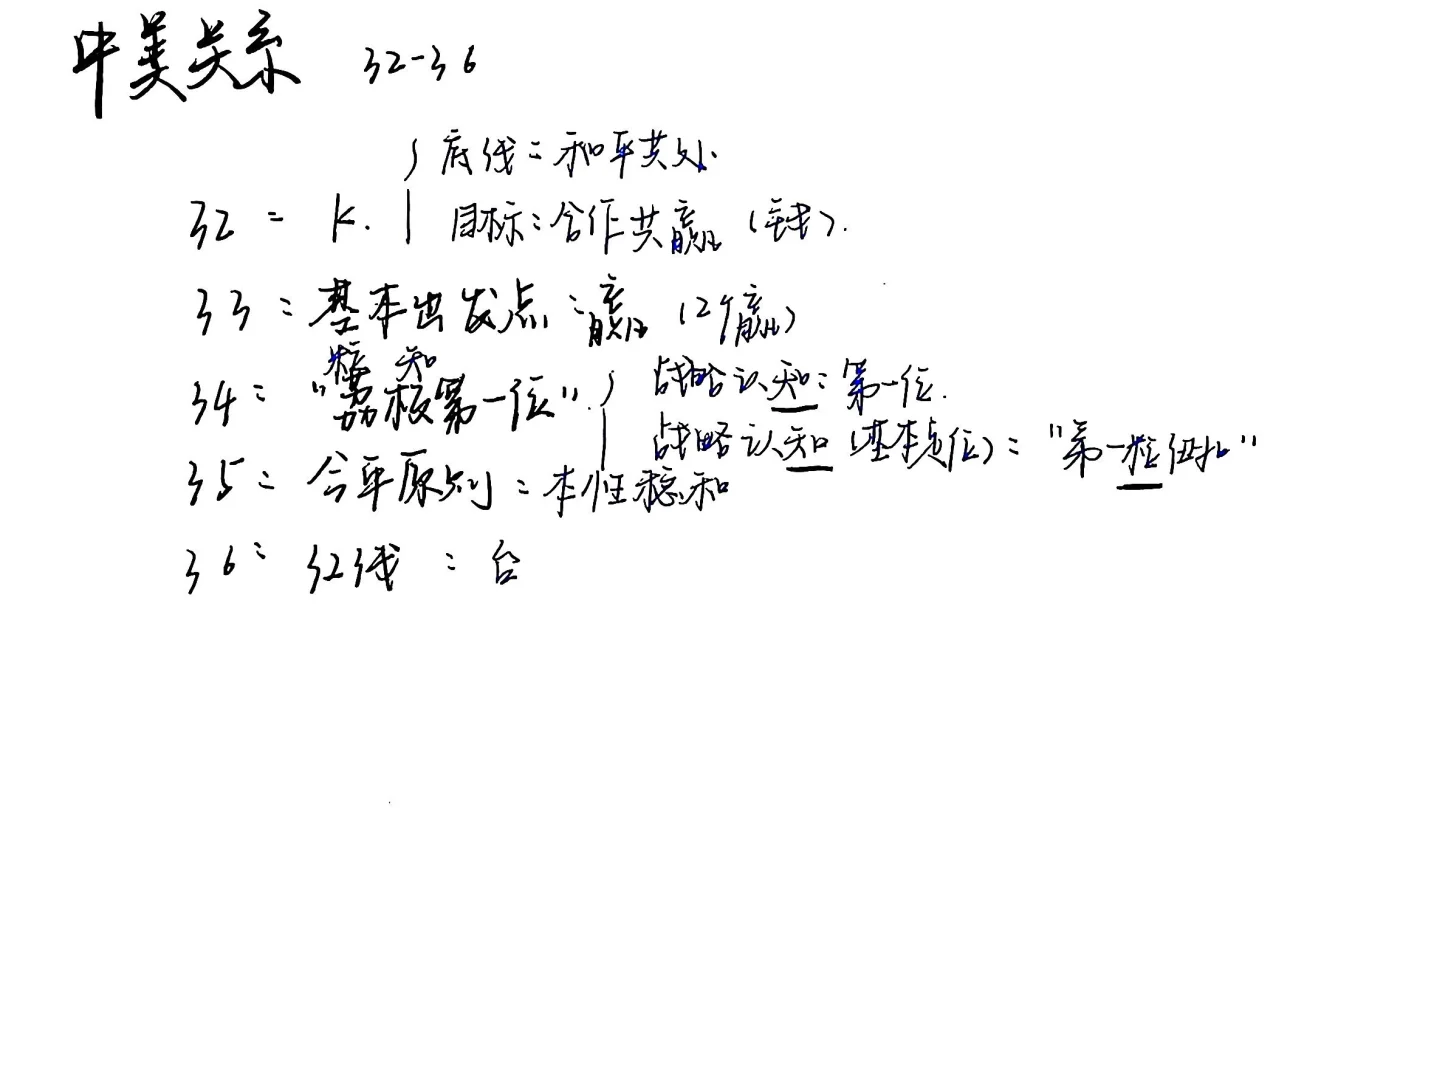 中美关系 32-36
底线：和平共处.
32： K. 目标：合作共赢（ ）.
33：基本出发点：赢（2个赢）
粒 知
34：“荔枝第一位”. 战略认知：第一位.
战略认知（基本 位）：“第一粒纽扣”
35：合平原则：本性稳和
36：红线：台